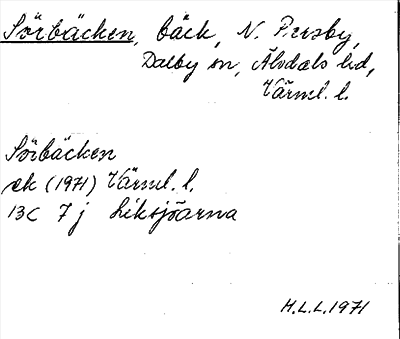 Sörbäcken, bäck, N. Persby,
Dalby sn, Älvdals hd,
Värml. l.
Sörbäcken
ek (1971) Värml. l.
13C 7j Liksjöarna
H.L.L. 1971